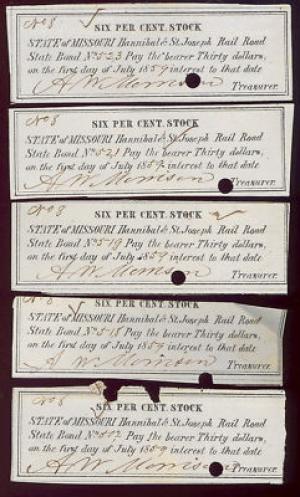 No 8
SIX PER CENT. STOCK
STATE of MISSOURI Hannibal & St. Joseph Rail Road
State Bond No 523 Pay the bearer Thirty dollars,
on the first day of July 1859 interest to that date
A W Morrison Treasurer.
No 8
SIX PER CENT. STOCK
STATE of MISSOURI Hannibal & St. Joseph Rail Road
State Bond No 521 Pay the bearer Thirty dollars,
on the first day of July 1859 interest to that date
A W Morrison Treasurer.
No 8
SIX PER CENT. STOCK
STATE of MISSOURI Hannibal & St. Joseph Rail Road
State Bond No 519 Pay the bearer Thirty dollars,
on the first day of July 1859 interest to that date
A W Morrison Treasurer.
No 8
SIX PER CENT. STOCK
STATE of MISSOURI Hannibal & St. Joseph Rail Road
State Bond No 518 Pay the bearer Thirty dollars,
on the first day of July 1859 interest to that date
A W Morrison Treasurer.
No 8
SIX PER CENT. STOCK
STATE of MISSOURI Hannibal & St. Joseph Rail Road
State Bond No 517 Pay the bearer Thirty dollars,
on the first day of July 1859 interest to that date
A W Morrison Treasurer.